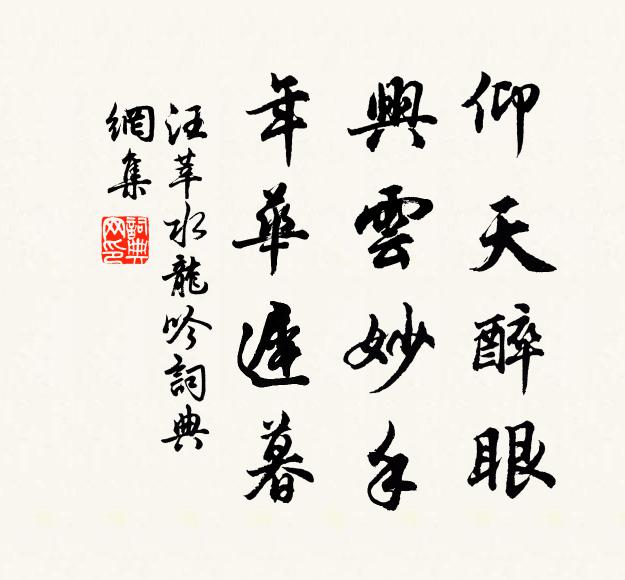 仰天醉眼
興雲妙手
年華遲暮
汪莘水龍吟詞典
網集
詞典
网印